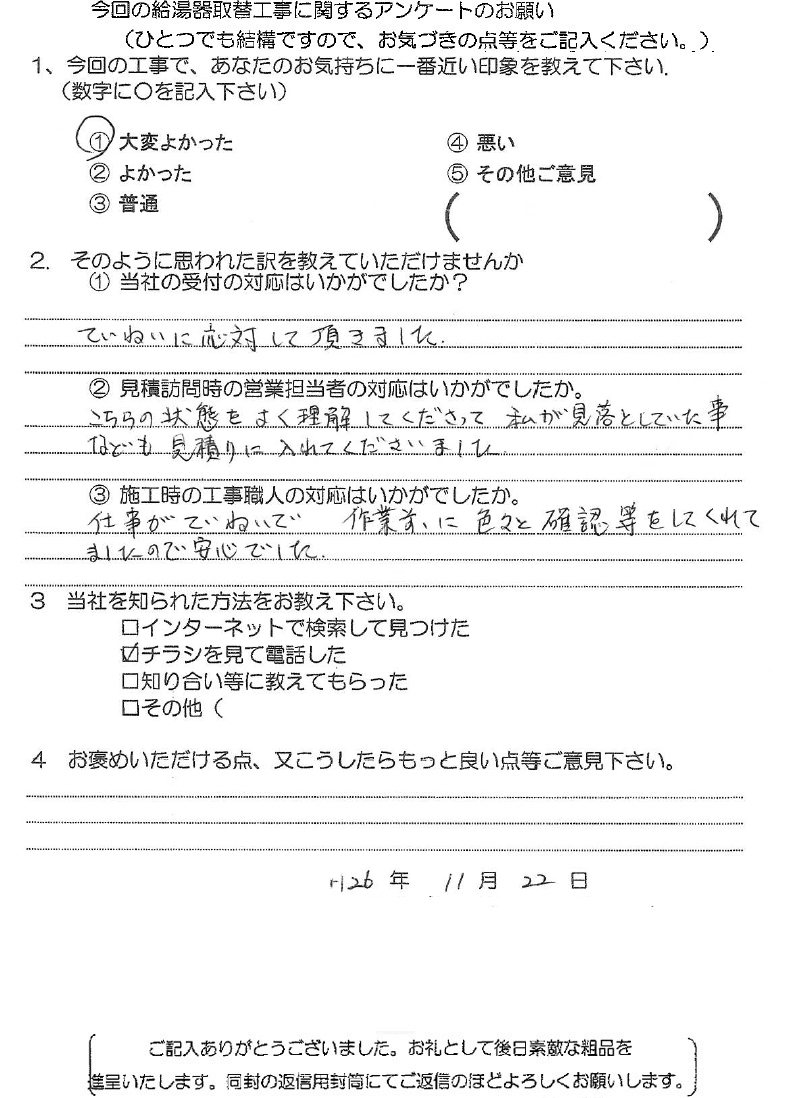 今回の給湯器取替工事に関するアンケートのお願い
（ひとつでも結構ですので、お気づきの点等をご記入ください。）
1、今回の工事で、あなたのお気持ちに一番近い印象を教えて下さい.
（数字に〇を記入下さい）
① 大変よかった
② よかった
③ 普通
④ 悪い
⑤ その他ご意見
（ ）
2. そのように思われた訳を教えていただけませんか
① 当社の受付の対応はいかがでしたか？
ていねいに応対して頂きました.
② 見積訪問時の営業担当者の対応はいかがでしたか。
こちらの状態をよく理解してくださって 私が見落としていた事
なども見積りに入れてくださいました
③ 施工時の工事職人の対応はいかがでしたか。
仕事がていねいで 作業前に色々と確認等をしてくれて
ましたので安心でした.
3 当社を知られた方法をお教え下さい。
□インターネットで検索して見つけた
☑チラシを見て電話した
□知り合い等に教えてもらった
□その他（
4 お褒めいただける点、又こうしたらもっと良い点等ご意見下さい。
H26 年 11 月 22 日
ご記入ありがとうございました。お礼として後日素敵な粗品を
進呈いたします。同封の返信用封筒にてご返信のほどよろしくお願いします。